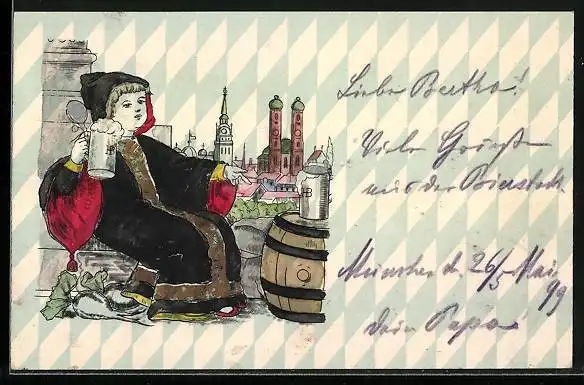 Liebe Bertha!
Viele Grüße
aus der Bierstadt.
München d. 26/5 Mai
99
Dein Papa